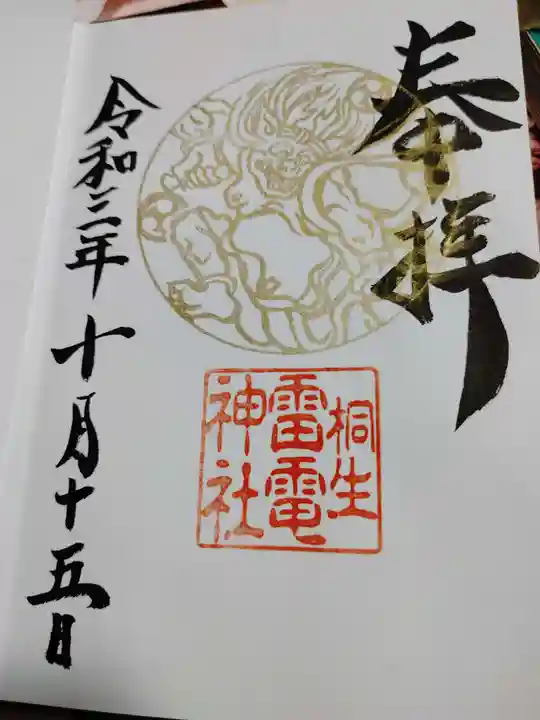 奉拝
桐生
雷電
神社
令和三年十月十五日